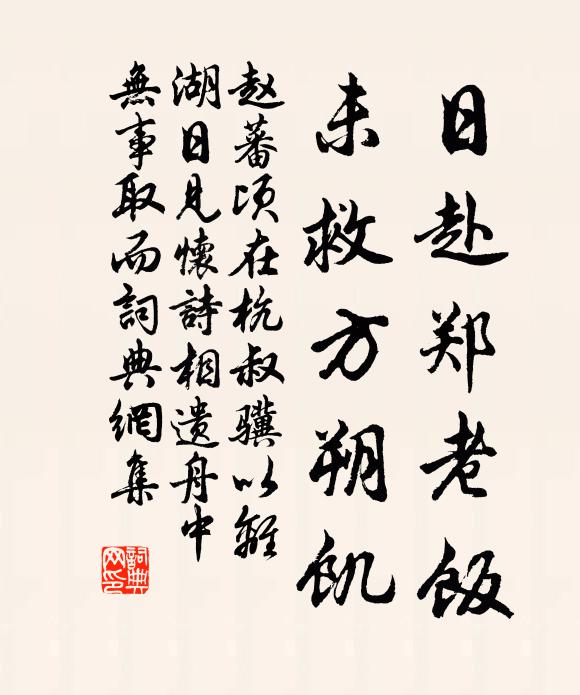 日赴郑老饭
未救方朔饥
赵蕃顷在杭叔骥以離
湖日見懷詩相遗舟中
無事取而詞典網集
詞典网印